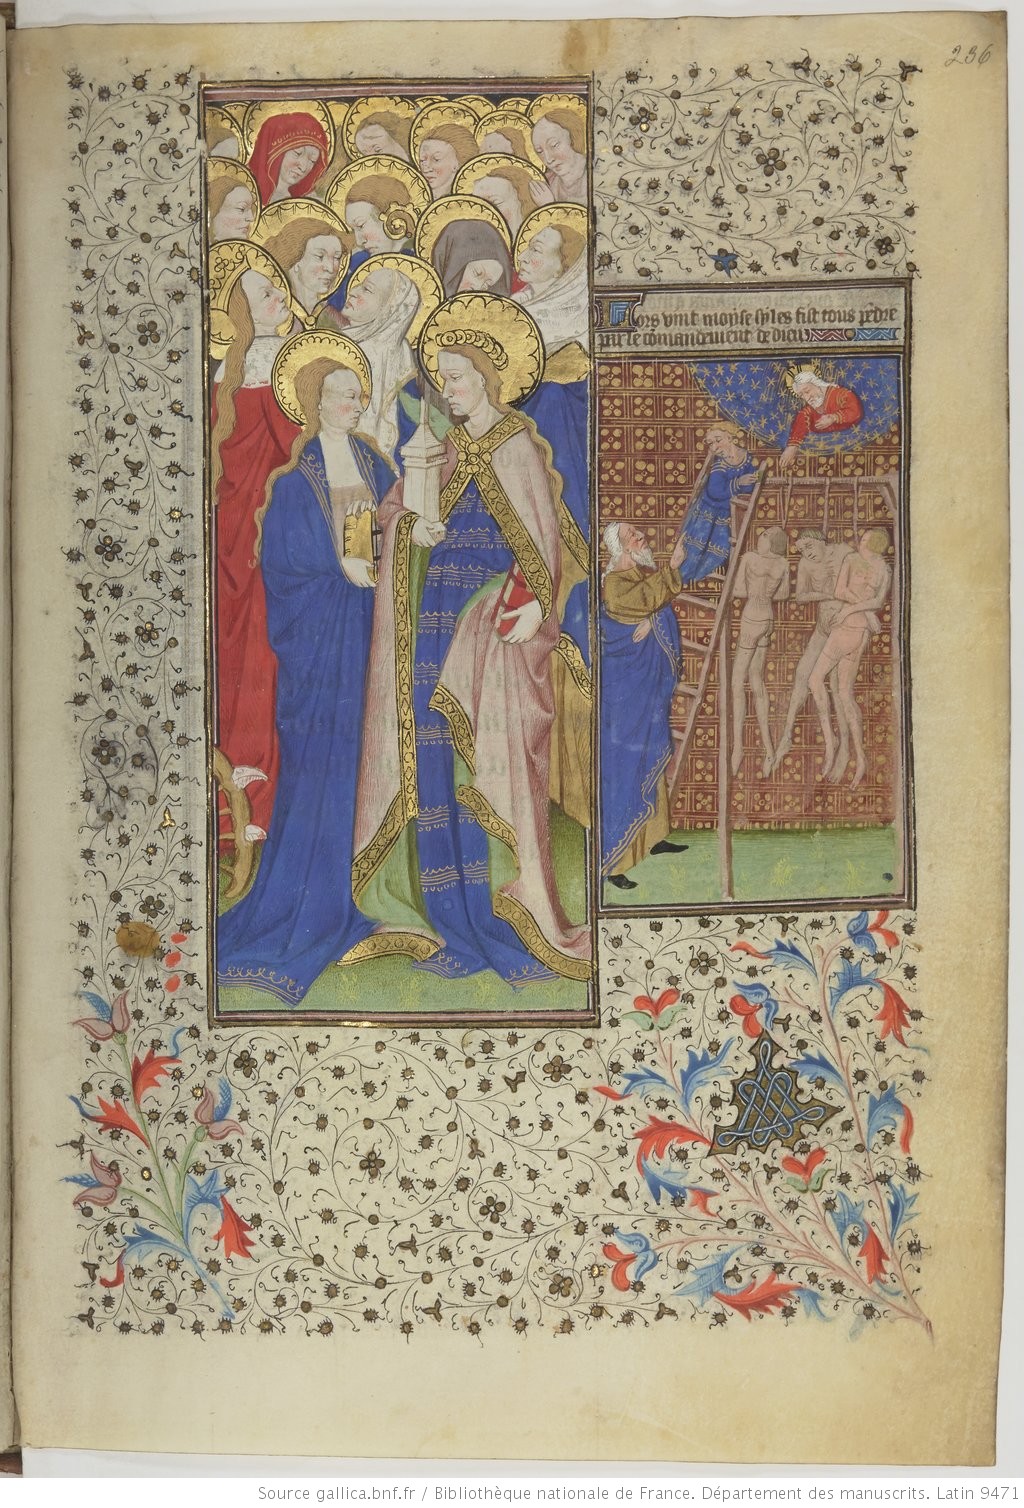 236
Lors vint moyse sy les fist tous pēdre
par le comandement de dieu
Source gallica.bnf.fr / Bibliothèque nationale de France. Département des manuscrits. Latin 9471